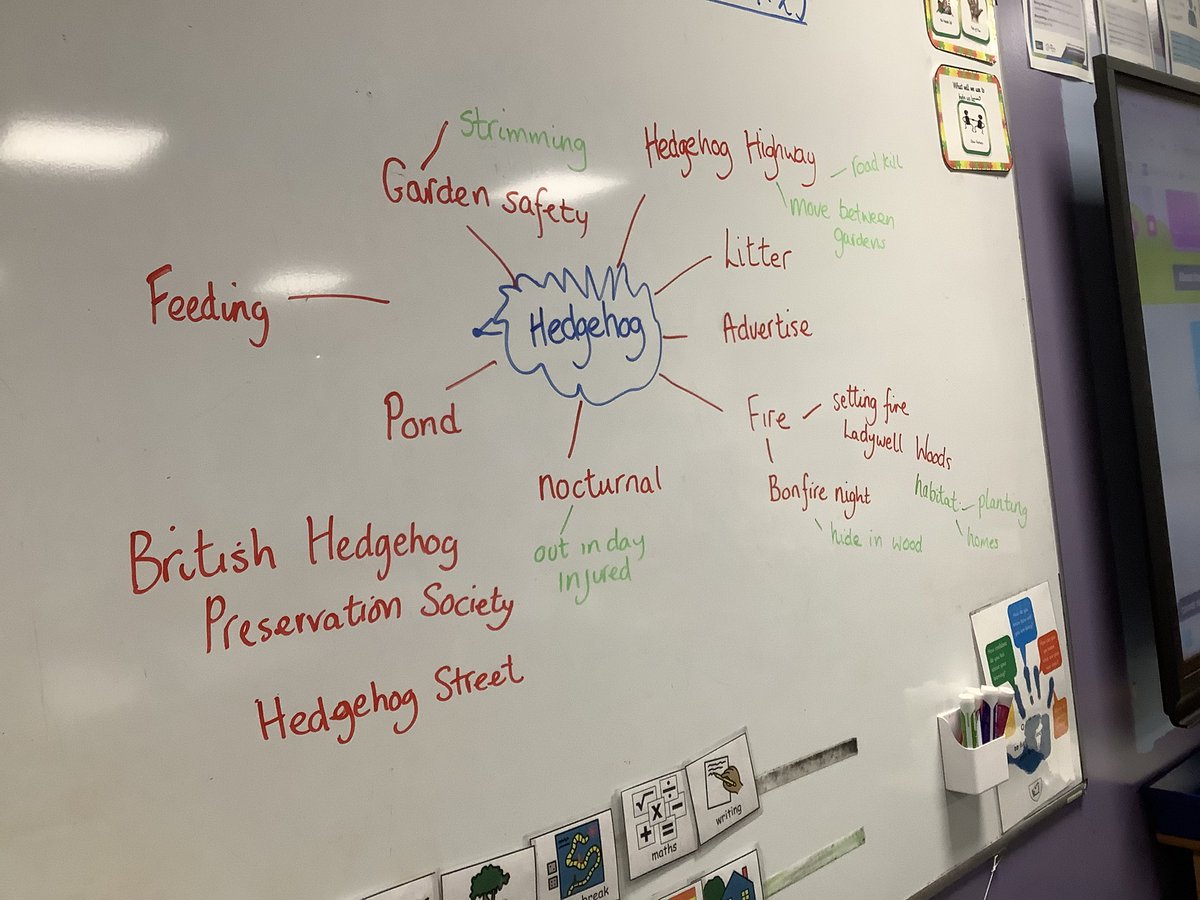 strimming
Garden safety
Hedgehog Highway
road kill
move between
gardens
Litter
Feeding
Hedgehog
Advertise
Pond
Fire
setting fire
Ladywell Woods
nocturnal
Bonfire night
habitat
planting
homes
hide in wood
out in day
injured
British Hedgehog
Preservation Society
Hedgehog Street
writing
maths
break